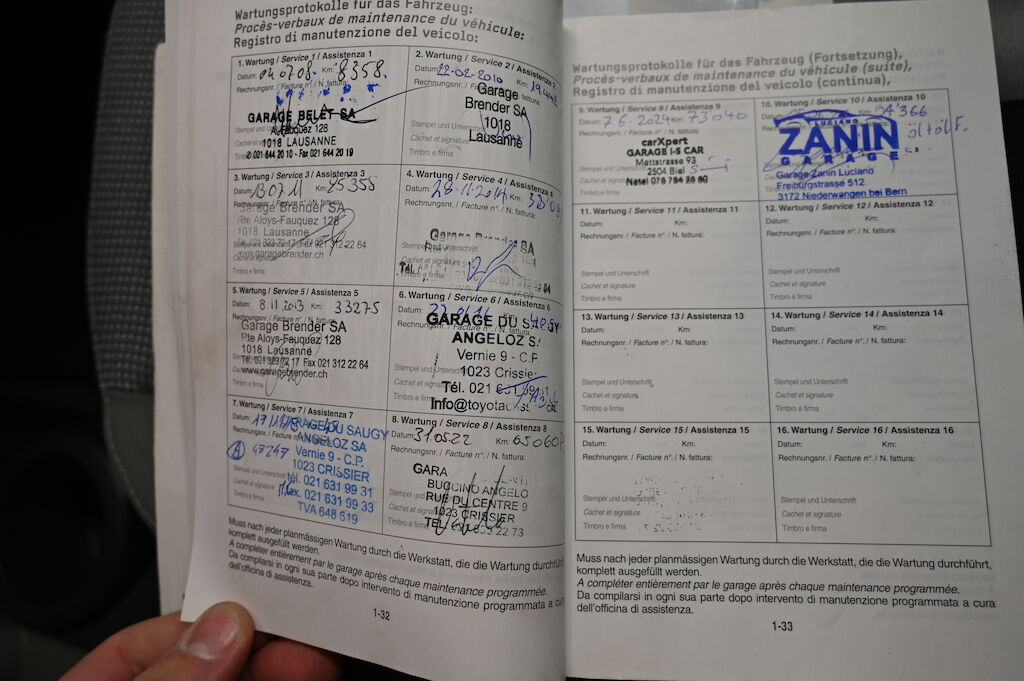 Wartungsprotokolle für das Fahrzeug:
Procès-verbaux de maintenance du véhicule:
Registro di manutenzione del veicolo:
1. Wartung / Service 1 / Assistenza 1
Datum: 04.07.08. Km: 8358.
Rechnungsnr. / Facture n°. / N. fattura:
GARAGE BELET SA
1018 LAUSANNE
✆ 021 644 20 10 - Fax 021 644 20 19
2. Wartung / Service 2 / Assistenza 2
Datum: 22-02-2010 Km:
Garage
Brender SA
1018
Lausanne
Stempel und Unterschrift
Cachet et signature
Timbro e firma
3. Wartung / Service 3 / Assistenza 3
Datum: Km:
Rechnungsnr. / Facture n°. / N. fattura:
Garage Brender SA
Rte Aloys-Fauquez 128
1018 Lausanne
Tél. 021 323 72 17 Fax 021 312 22 64
www.garagebrender.ch
Timbro e firma
4. Wartung / Service 4 / Assistenza 4
Datum: Km:
Rechnungsnr. / Facture n°. / N. fattura:
Garage Brender SA
Stempel und Unterschrift
Cachet et signature
Tél.
Timbro e firma
5. Wartung / Service 5 / Assistenza 5
Datum: 8.11.2013 Km: 33275
Rechnungsnr. / Facture n°. / N. fattura:
Garage Brender SA
Rte Aloys-Fauquez 128
1018 Lausanne
Tél. 021 323 72 17 Fax 021 312 22 64
www.garagebrender.ch
Timbro e firma
6. Wartung / Service 6 / Assistenza 6
Datum: Km:
GARAGE DU SAUGY
ANGELOZ S.
Vernie 9 - C.P.
1023 Crissier
Tél. 021
Stempel und Unterschrift
Cachet et signature
Timbro e firma
7. Wartung / Service 7 / Assistenza 7
Datum:
GARAGE DU SAUGY
Rechnungsnr. / Facture n°.
ANGELOZ SA
Vernie 9 - C.P.
1023 CRISSIER
tél. 021 631 99 31
fax. 021 631 99 33
TVA 648 619
Stempel und Unterschrift
Cachet et signature
Timbro e firma
8. Wartung / Service 8 / Assistenza 8
Datum: 31.05.22 Km: 65060
Rechnungsnr. / Facture n°. / N. fattura:
GARA
BUCCINO ANGELO
RUE DU CENTRE 9
1023 CRISSIER
Stempel und Unterschrift
Cachet et signature
Timbro e firma
Muss nach jeder planmässigen Wartung durch die Werkstatt, die die Wartung durchführt,
komplett ausgefüllt werden.
A compléter entièrement par le garage après chaque maintenance programmée.
Da compilarsi in ogni sua parte dopo intervento di manutenzione programmata a cura
dell'officina di assistenza.
1-32
Wartungsprotokolle für das Fahrzeug (Fortsetzung),
Procès-verbaux de maintenance du véhicule (suite),
Registro di manutenzione del veicolo (continua),
9. Wartung / Service 9 / Assistenza 9
Datum: 7.6.2024 Km: 73040
Rechnungsnr. / Facture n°. / N. fattura:
carXpert
GARAGE I-S CAR
Mettstrasse 93
2504 Biel
Natel 078 784 28 80
Timbro e firma
10. Wartung / Service 10 / Assistenza 10
Km: 94'366
LUCIANO
ZANIN
GARAGE
Garage Zanin Luciano
Freiburgstrasse 512
3172 Niederwangen bei Bern
11. Wartung / Service 11 / Assistenza 11
Datum: Km:
Rechnungsnr. / Facture n°. / N. fattura:
Stempel und Unterschrift
Cachet et signature
Timbro e firma
12. Wartung / Service 12 / Assistenza 12
Datum: Km:
Rechnungsnr. / Facture n°. / N. fattura:
Stempel und Unterschrift
Cachet et signature
Timbro e firma
13. Wartung / Service 13 / Assistenza 13
Datum: Km:
Rechnungsnr. / Facture n°. / N. fattura:
Stempel und Unterschrift
Cachet et signature
Timbro e firma
14. Wartung / Service 14 / Assistenza 14
Datum: Km:
Rechnungsnr. / Facture n°. / N. fattura:
Stempel und Unterschrift
Cachet et signature
Timbro e firma
15. Wartung / Service 15 / Assistenza 15
Datum: Km:
Rechnungsnr. / Facture n°. / N. fattura:
Stempel und Unterschrift
Cachet et signature
Timbro e firma
16. Wartung / Service 16 / Assistenza 16
Datum: Km:
Rechnungsnr. / Facture n°. / N. fattura:
Stempel und Unterschrift
Cachet et signature
Timbro e firma
Muss nach jeder planmässigen Wartung durch die Werkstatt, die die Wartung durchführt,
komplett ausgefüllt werden.
A compléter entièrement par le garage après chaque maintenance programmée.
Da compilarsi in ogni sua parte dopo intervento di manutenzione programmata a cura
dell'officina di assistenza.
1-33